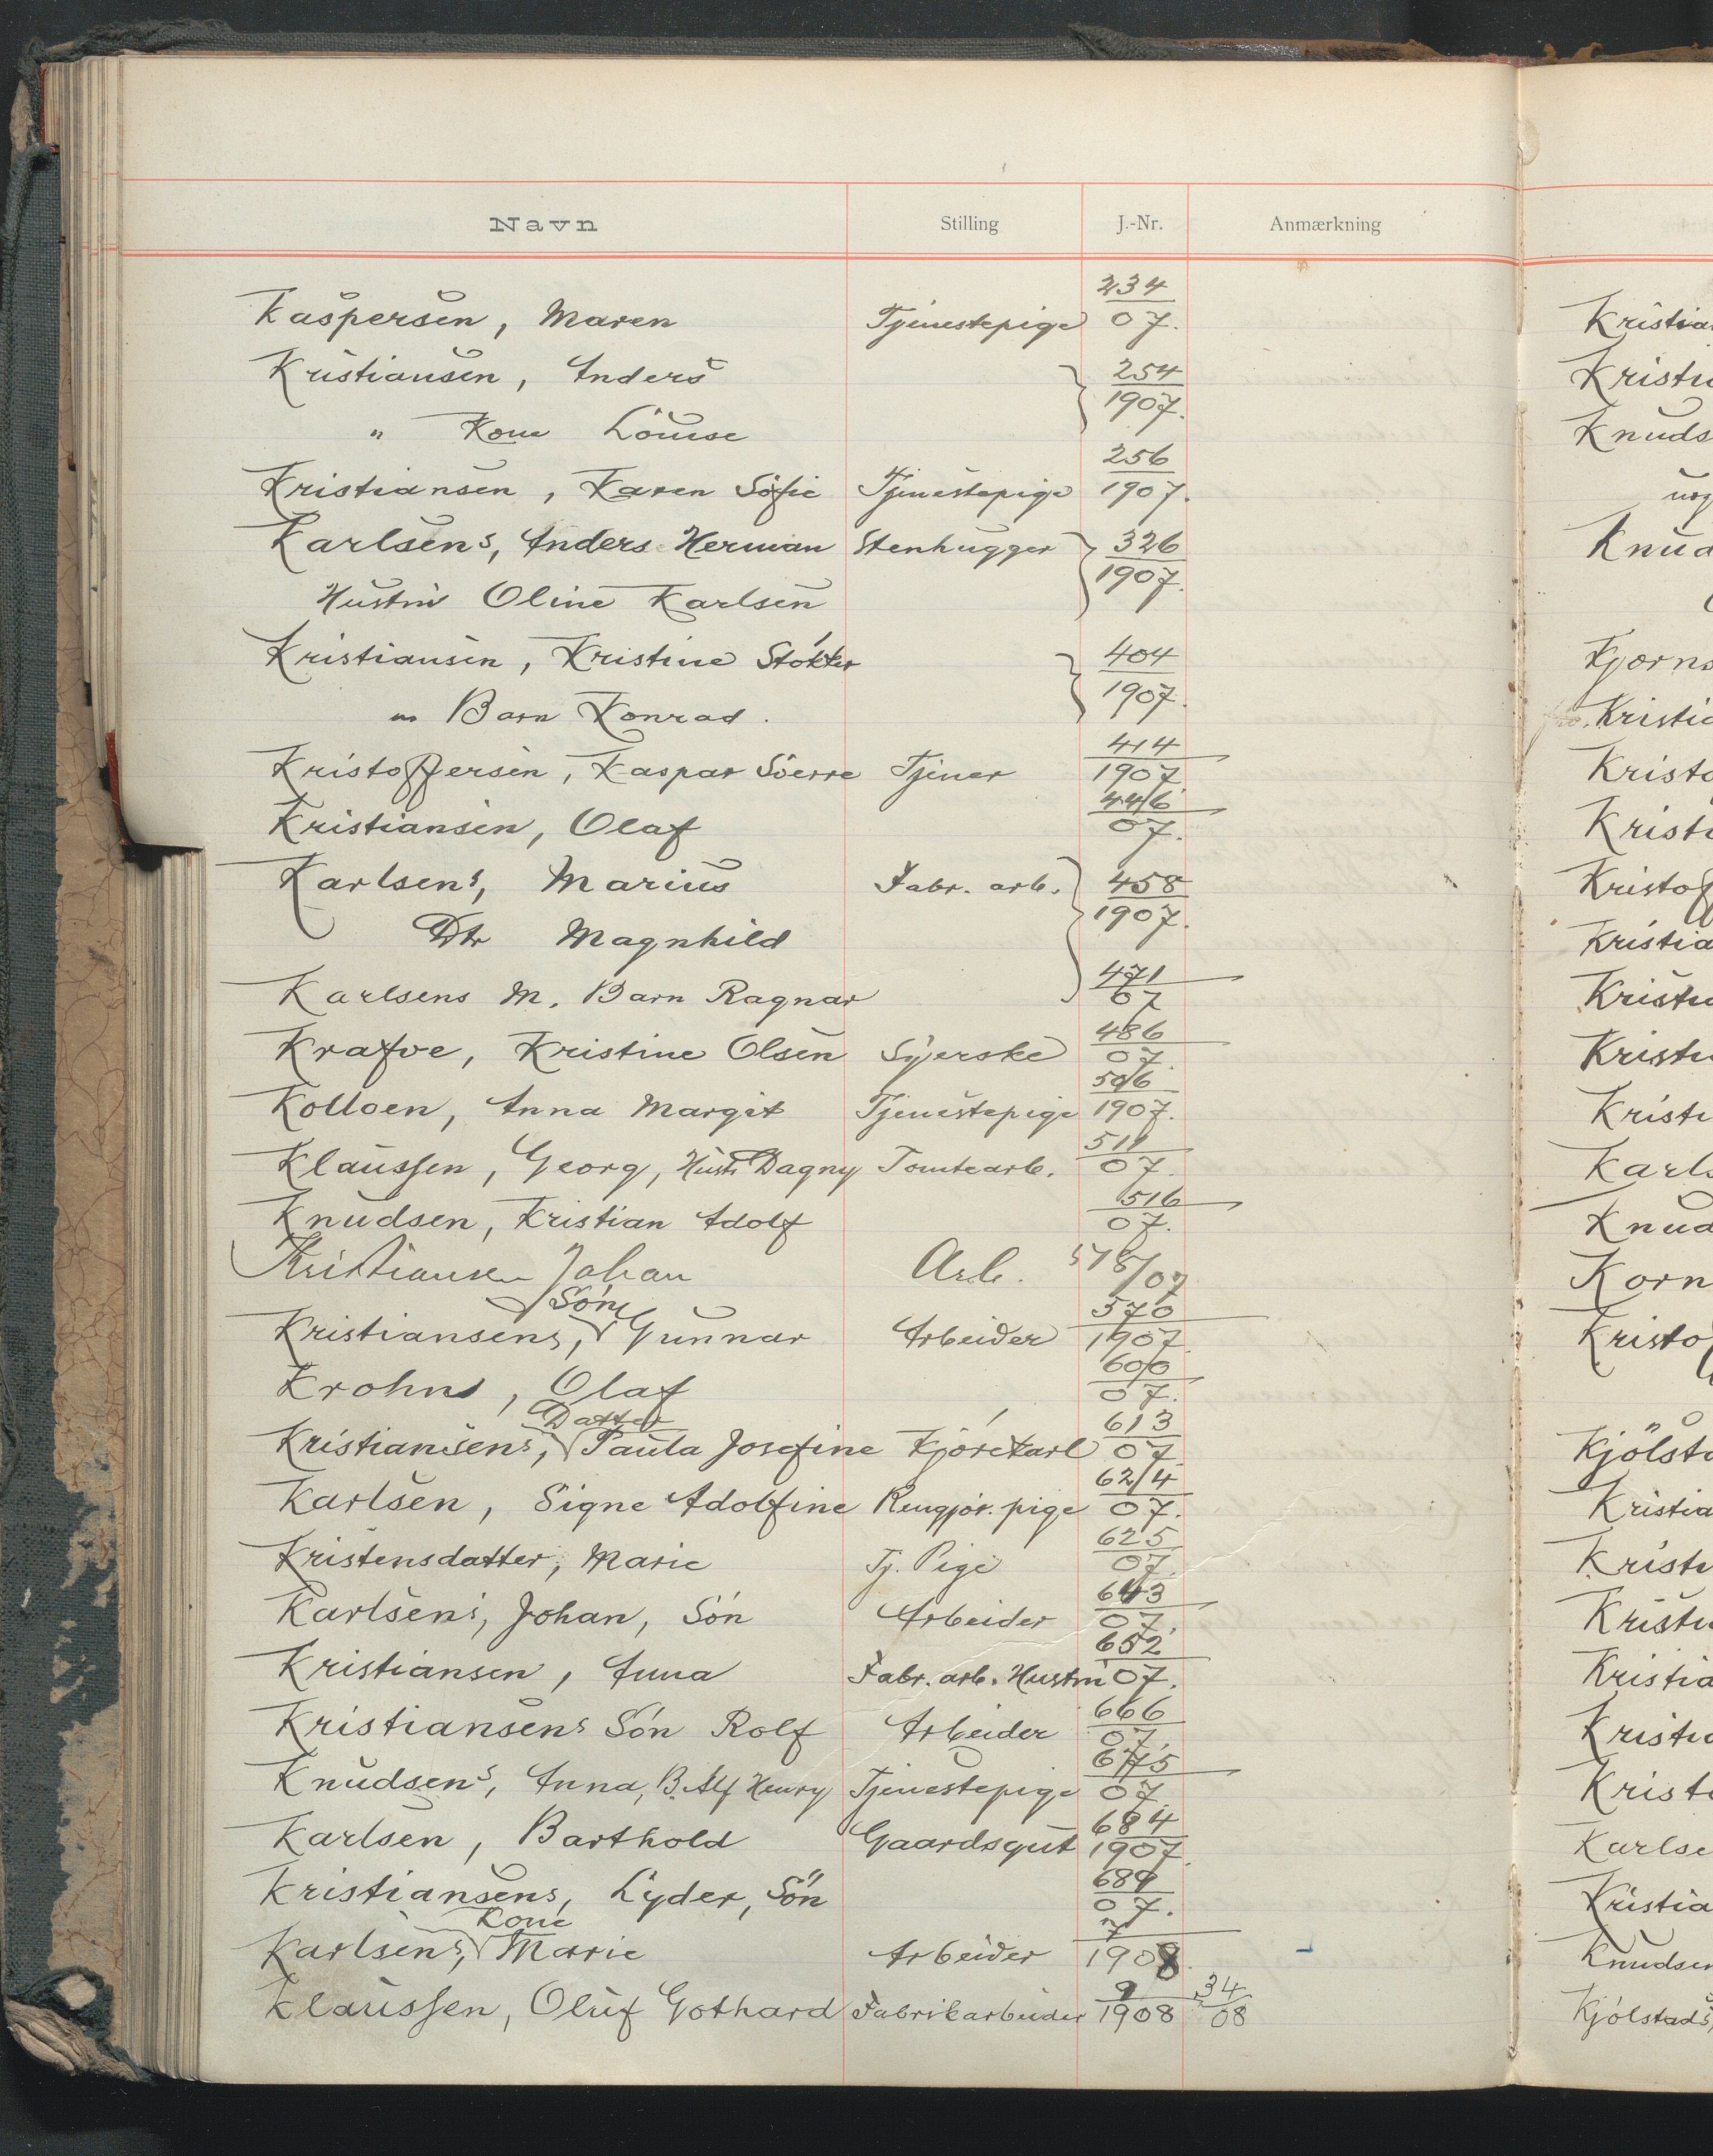 Navn Stilling J.-Nr. Anmærkning
Kaspersen, Maren Tjenestepige 234/07.
Kristiansen, Anders 254/1907.
" Kone Louise
Kristiansen, Karen Sofie Tjenestepige 256/1907.
Karlsens, Anders Herman Stenhugger 326/1907.
Hustru Oline Karlsen
Kristiansen, Kristine 404/1907.
" Barn Konrad.
Kristoffersen, Kaspar Sverre Tjener 414/1907
Kristiansen, Olaf 446/07.
Karlsens, Marius Fabr. arb. 458/1907.
Dtr Magnhild
Karlsens M. Barn Ragnar 471/07
Krafve, Kristine Olsen Syerske 486/07
Kolloen, Anna Margit Tjenestepige 506/1907.
Klaussen, Georg, Hustr Dagny Tomtearb. 511/07.
Knudsen, Kristian Adolf 516/07.
Kristiansen Johan Arb. 518/07
Søn
Kristiansens, Gunnar Arbeider 570/1907
Krohns, Olaf 600/07.
Datter
Kristiansens, Paula Josefine Kjørekarl 613/07
Karlsen, Signe Adolfine Rengjør. pige 624/07.
Kristensdatter, Marie Tj. Pige 625/07.
Karlsens, Johan, Søn Arbeider 643/07.
Kristiansen, Anna Fabr. arb. Hustru 652/07.
Kristiansens Søn Rolf Arbeider 666/07.
Knudsens, Anna, B. Alf Henry Tjenestepige 675/07
Karlsen, Barthold Gaardsgut 684/1907.
Kristiansens, Lyder, Søn 689/07.
Kone
Karlsens, Marie Arbeider 7/1908.
Klaussen, Oluf Gothard Fabrikarbeider 9/1908 34/08
Kristia
Kristi
Knuds
Knud
Kjorns
Kristia
Kristo
Kristi
Kristof
Kristia
Kristi
Kristi
Kristi
Karls
Knud
Korn
Kristo
Kjölst
Kristia
Kristi
Kristi
Kristia
Kristi
Kristi
Karlse
Kristia
Knudsen
Kjölstads,